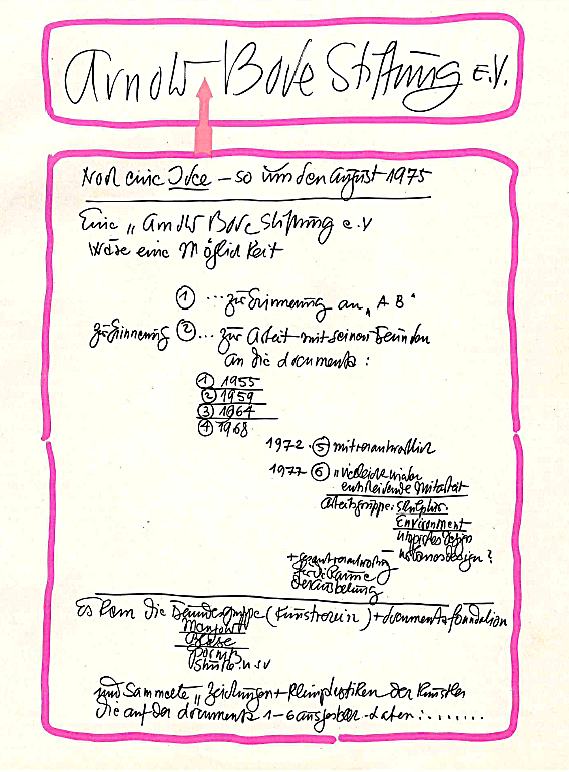 Arnold Bode Stiftung E.V.
Noch eine Idee – so um den August 1975
Eine „Arnold Bode Stiftung e.V
wäre eine Möglichkeit
① ... zur Erinnerung an „A B"
zur Erinnerung ② ... zur Arbeit mit seinen Freunden
an die documenta :
① 1955
② 1959
③ 1964
④ 1968
1972 . ⑤ mitverantwortlich
1977 ⑥ „vielleicht wieder
entscheidende Mitarbeit
Arbeitsgruppe:
Environment
+ gesamtverantwortung
für die Räume
der Ausstellung
Es kam die Freundesgruppe (Kunstverein) + documenta foundation
Bode
und sammelte „Zeichnungen + Kleinplastiken der Künstler
die auf der documenta 1–6